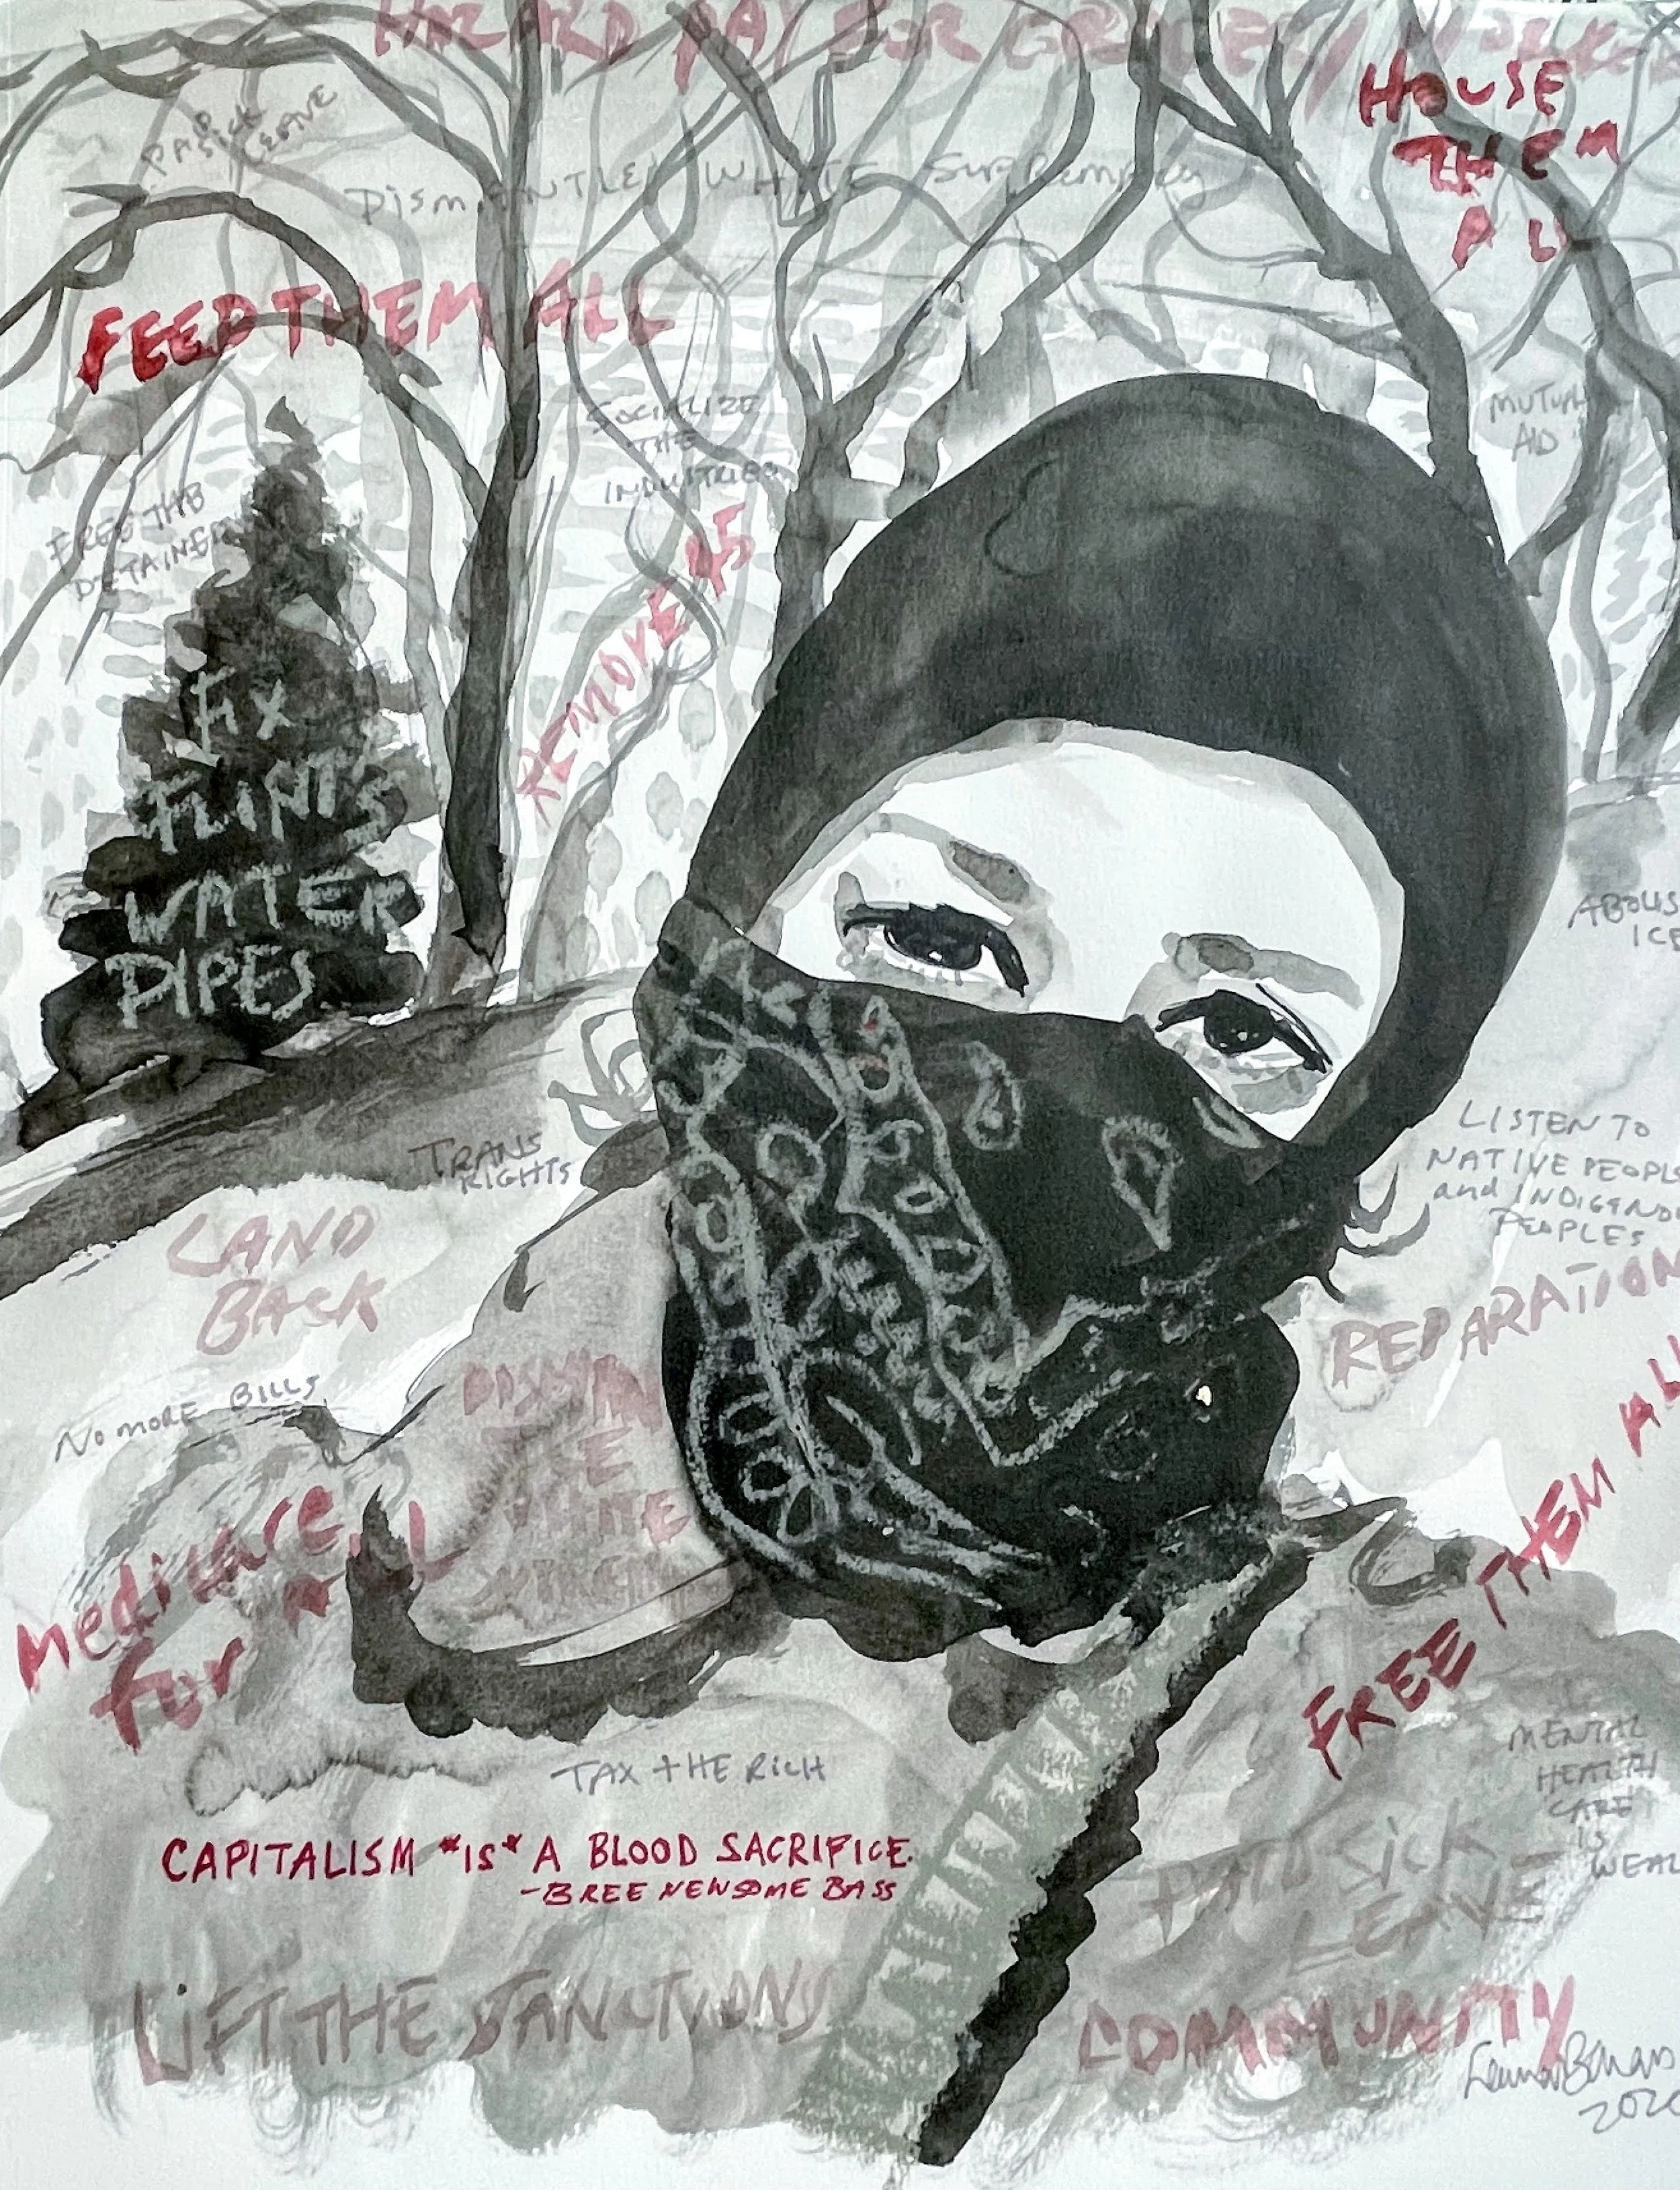 HAZARD PAY FOR GROCERY WORKERS
HOUSE
THEM
ALL
PAID
SICK
LEAVE
DISMANTLE WHITE SUPREMACY
FEED THEM ALL
SOCIALIZE
THE
INDUSTRIES
MUTUAL
AID
FREE THE
DETAINED
REMOVE 45
FIX
FLINT'S
WATER
PIPES
ABOLIS
ICE
LISTEN TO
NATIVE PEOPL
and INDIGENO
PEOPLES
TRANS
RIGHTS
LAND
BACK
REPARATION
NO MORE BILLS
THE
medicare
for ALL
FREE THEM ALL
MENTAL
HEALTH
CARE
IS
WEAL
TAX THE RICH
CAPITALISM *IS* A BLOOD SACRIFICE.
-BREE NEWSOME BASS
PAID SICK
LEAVE
LIFT THE SANCTIONS
COMMUNITY